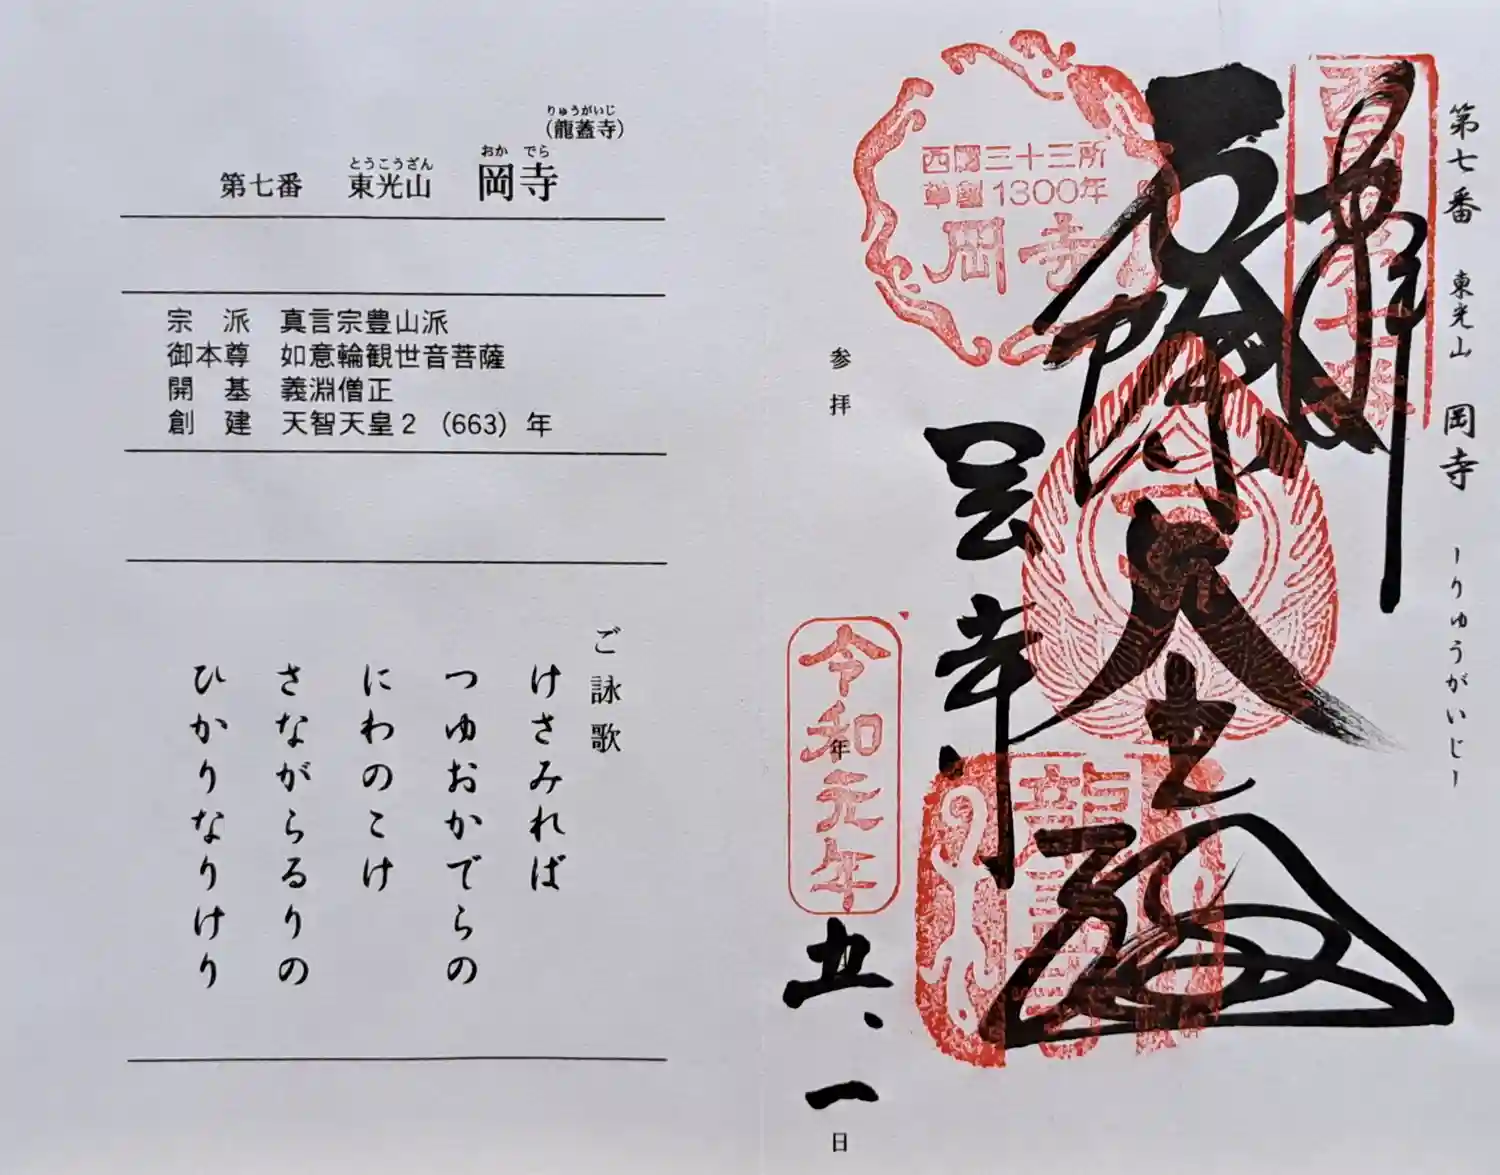 (龍蓋寺)
りゅうがいじ
第七番 東光山 岡寺
とうこうざん おか でら
宗 派 真言宗豊山派
御本尊 如意輪観世音菩薩
開 基 義淵僧正
創 建 天智天皇2 (663) 年
ご詠歌
けさみれば
つゆおかでらの
にわのこけ
さながらるりの
ひかりなりけり
第七番 東光山 岡寺 ーりゅうがいじー
西国第七番
奉拝
西國三十三所
草創1300年
岡寺
岡寺
参拝
令和元年
年
五、一
日